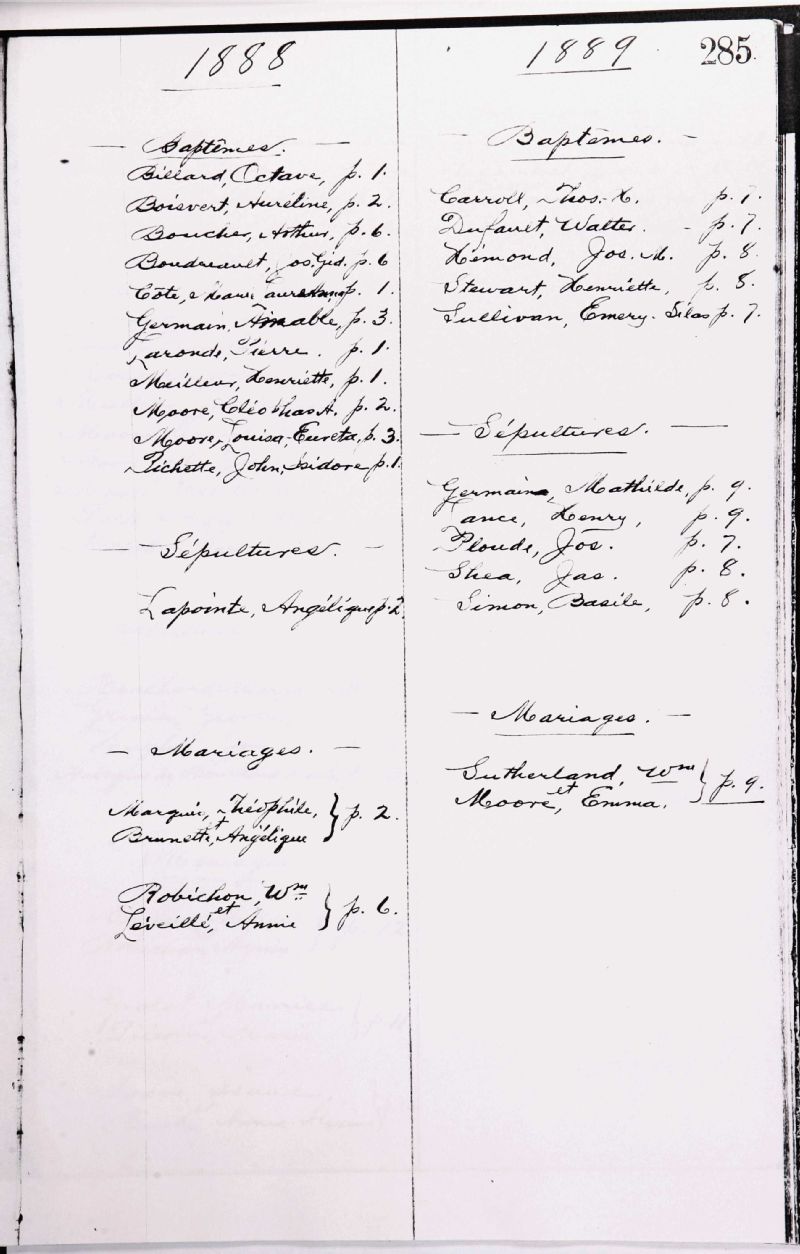 1888
— Baptêmes. —
Billard, Octave, p. 1.
Boisvert, Auréline, p. 2.
Boucher, Arthur, p. 6.
Boudreault, Jos. Gid. p. 6
Côté, Marie Laure Anna p. 1.
Germain, Aimable, p. 3.
Laronde, Pierre. p. 1.
Meilleur, Henriette, p. 1.
Moore, Cléophas A. p. 2.
Moore, Louisa, Eureta, p. 3.
Pichette, John, Isidore p. 1.
— Sépultures. —
Lapointe, Angélique p. 2.
— Mariages. —
Marquis, Théophile, } p. 2.
et
Brunette, Angélique
Robichon, Wm } p. 6.
et
Léveillé, Annie
1889
285.
— Baptêmes. —
Carroll, Thos. H. p. 7.
Dufault, Walter. - p. 7.
Hémond, Jos. M. p. 8.
Stewart, Henriette, p. 8.
Sullivan, Emery. Silas p. 7.
— Sépultures. —
Germain, Mathilde, p. 9.
Lance, Henry, p. 9.
Ploude, Jos. p. 7.
Shea, Jas. p. 8.
Simon, Basile, p. 8.
— Mariages. —
Sutherland, Wm } p. 9.
et
Moore, Emma.